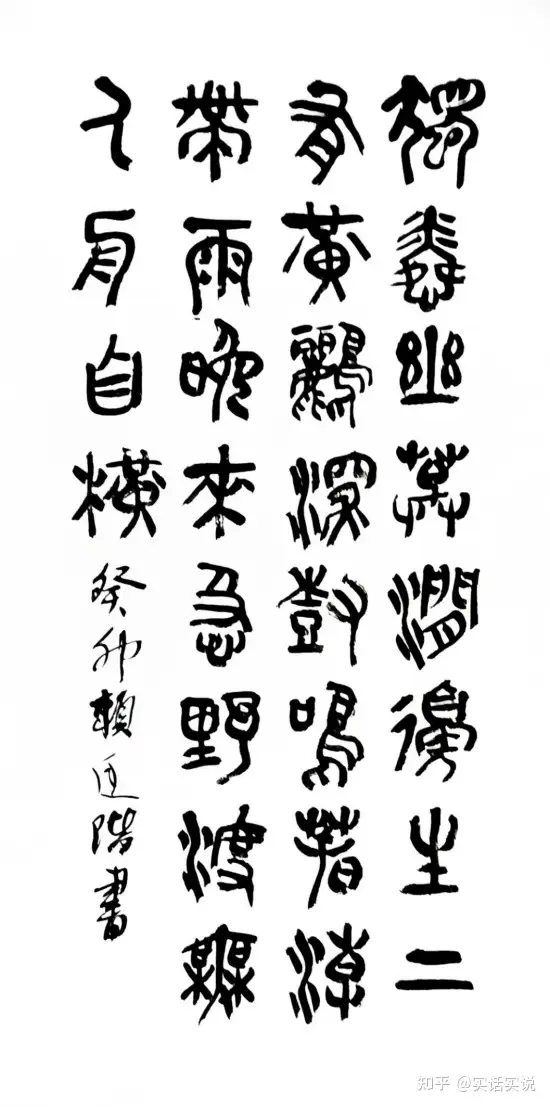 獨憐幽草澗邊生上
有黃鸝深樹鳴春潮
帶雨晚來急野渡無
人舟自橫
癸卯賴廷階書
知乎 @实话实说